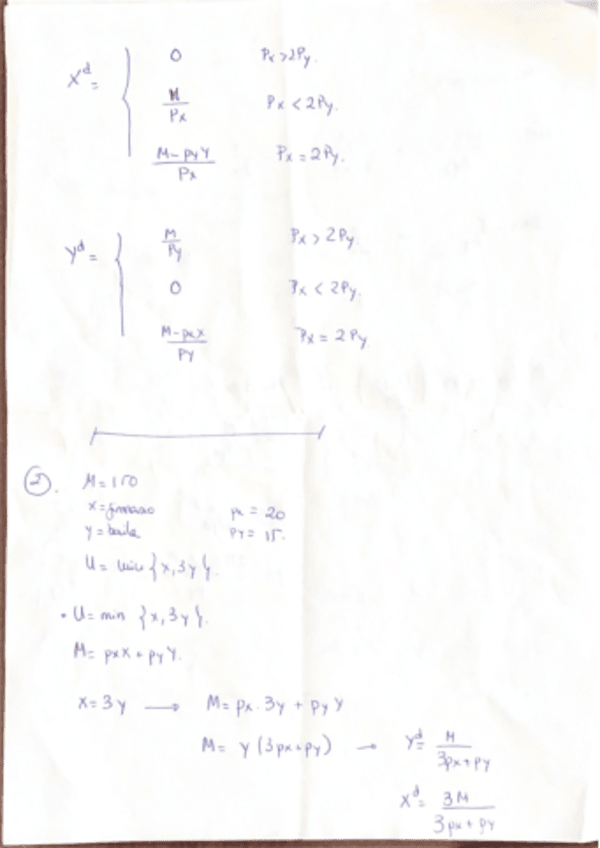 0 Px > 2Py.
X^d = { M/Px Px < 2Py.
(M - pyY)/Px Px = 2Py.
M/Py Px > 2Py.
Y^d = { 0 Px < 2Py.
(M - pxX)/Py Px = 2Py
2.
M = 150
x = gimnasio px = 20
y = baile py = 15.
U = min {x, 3y}.
• U = min {x, 3y}.
M = pxX + pyY.
X = 3y → M = px · 3y + pyY
M = y (3px + py) → Y^d = M/(3px + py)
X^d = 3M/(3px + py)